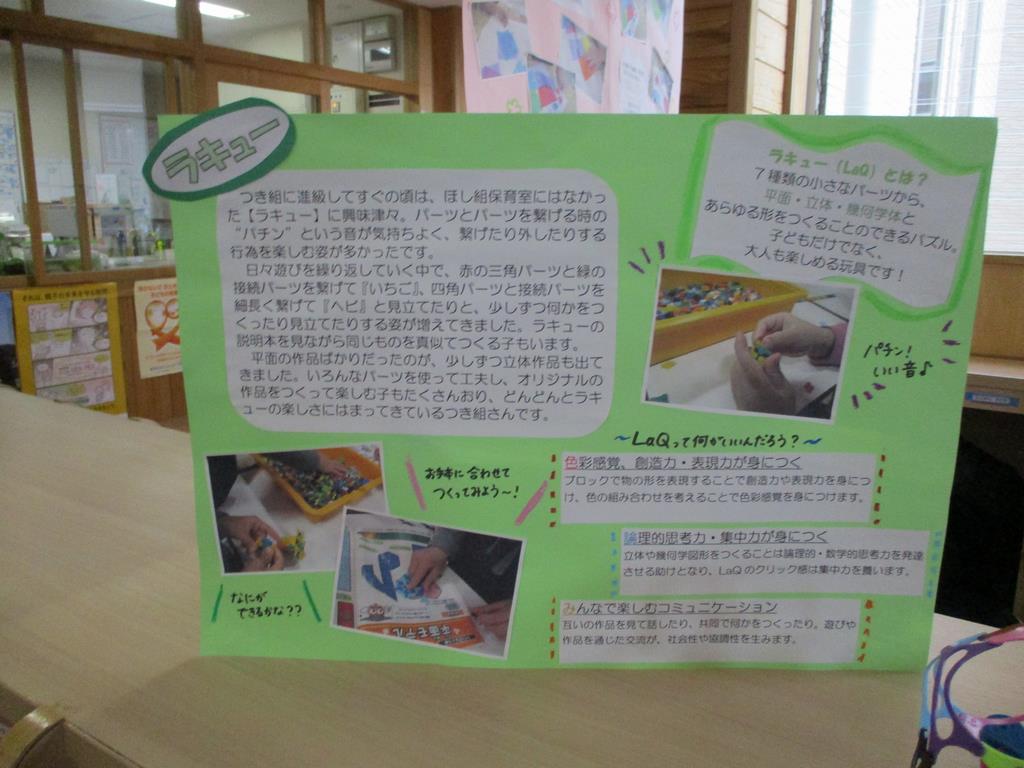 ラキュー
つき組に進級してすぐの頃は、ほし組保育室にはなかっ
た【ラキュー】に興味津々。パーツとパーツを繋げる時の
“パチン”という音が気持ちよく、繋げたり外したりする
行為を楽しむ姿が多かったです。
日々遊びを繰り返していく中で、赤の三角パーツと緑の
接続パーツを繋げて『いちご』、四角パーツと接続パーツを
細長く繋げて『ヘビ』と見立てたりと、少しずつ何かをつ
くったり見立てたりする姿が増えてきました。ラキューの
説明本を見ながら同じものを真似てつくる子もいます。
平面の作品ばかりだったのが、少しずつ立体作品も出て
きました。いろんなパーツを使って工夫し、オリジナルの
作品をつくって楽しむ子もたくさんおり、どんどんとラキ
ューの楽しさにはまってきているつき組さんです。
ラキュー（LaQ）とは？
7種類の小さなパーツから、
平面・立体・幾何学体と
あらゆる形をつくることのできるパズル。
子どもだけでなく、
大人も楽しめる玩具です！
パチン！
いい音♪
お手本に合わせて
つくってみよう〜！
なにが
できるかな??
〜LaQって何がいいんだろう？〜
色彩感覚、創造力・表現力が身につく
ブロックで物の形を表現することで創造力や表現力を身につ
け、色の組み合わせを考えることで色彩感覚を身につけます。
論理的思考力・集中力が身につく
立体や幾何学図形をつくることは論理的・数学的思考力を発達
させる助けとなり、LaQのクリック感は集中力を養います。
みんなで楽しむコミュニケーション
互いの作品を見て話したり、共同で何かをつくったり。遊びや
作品を通じた交流が、社会性や協調性を生みます。